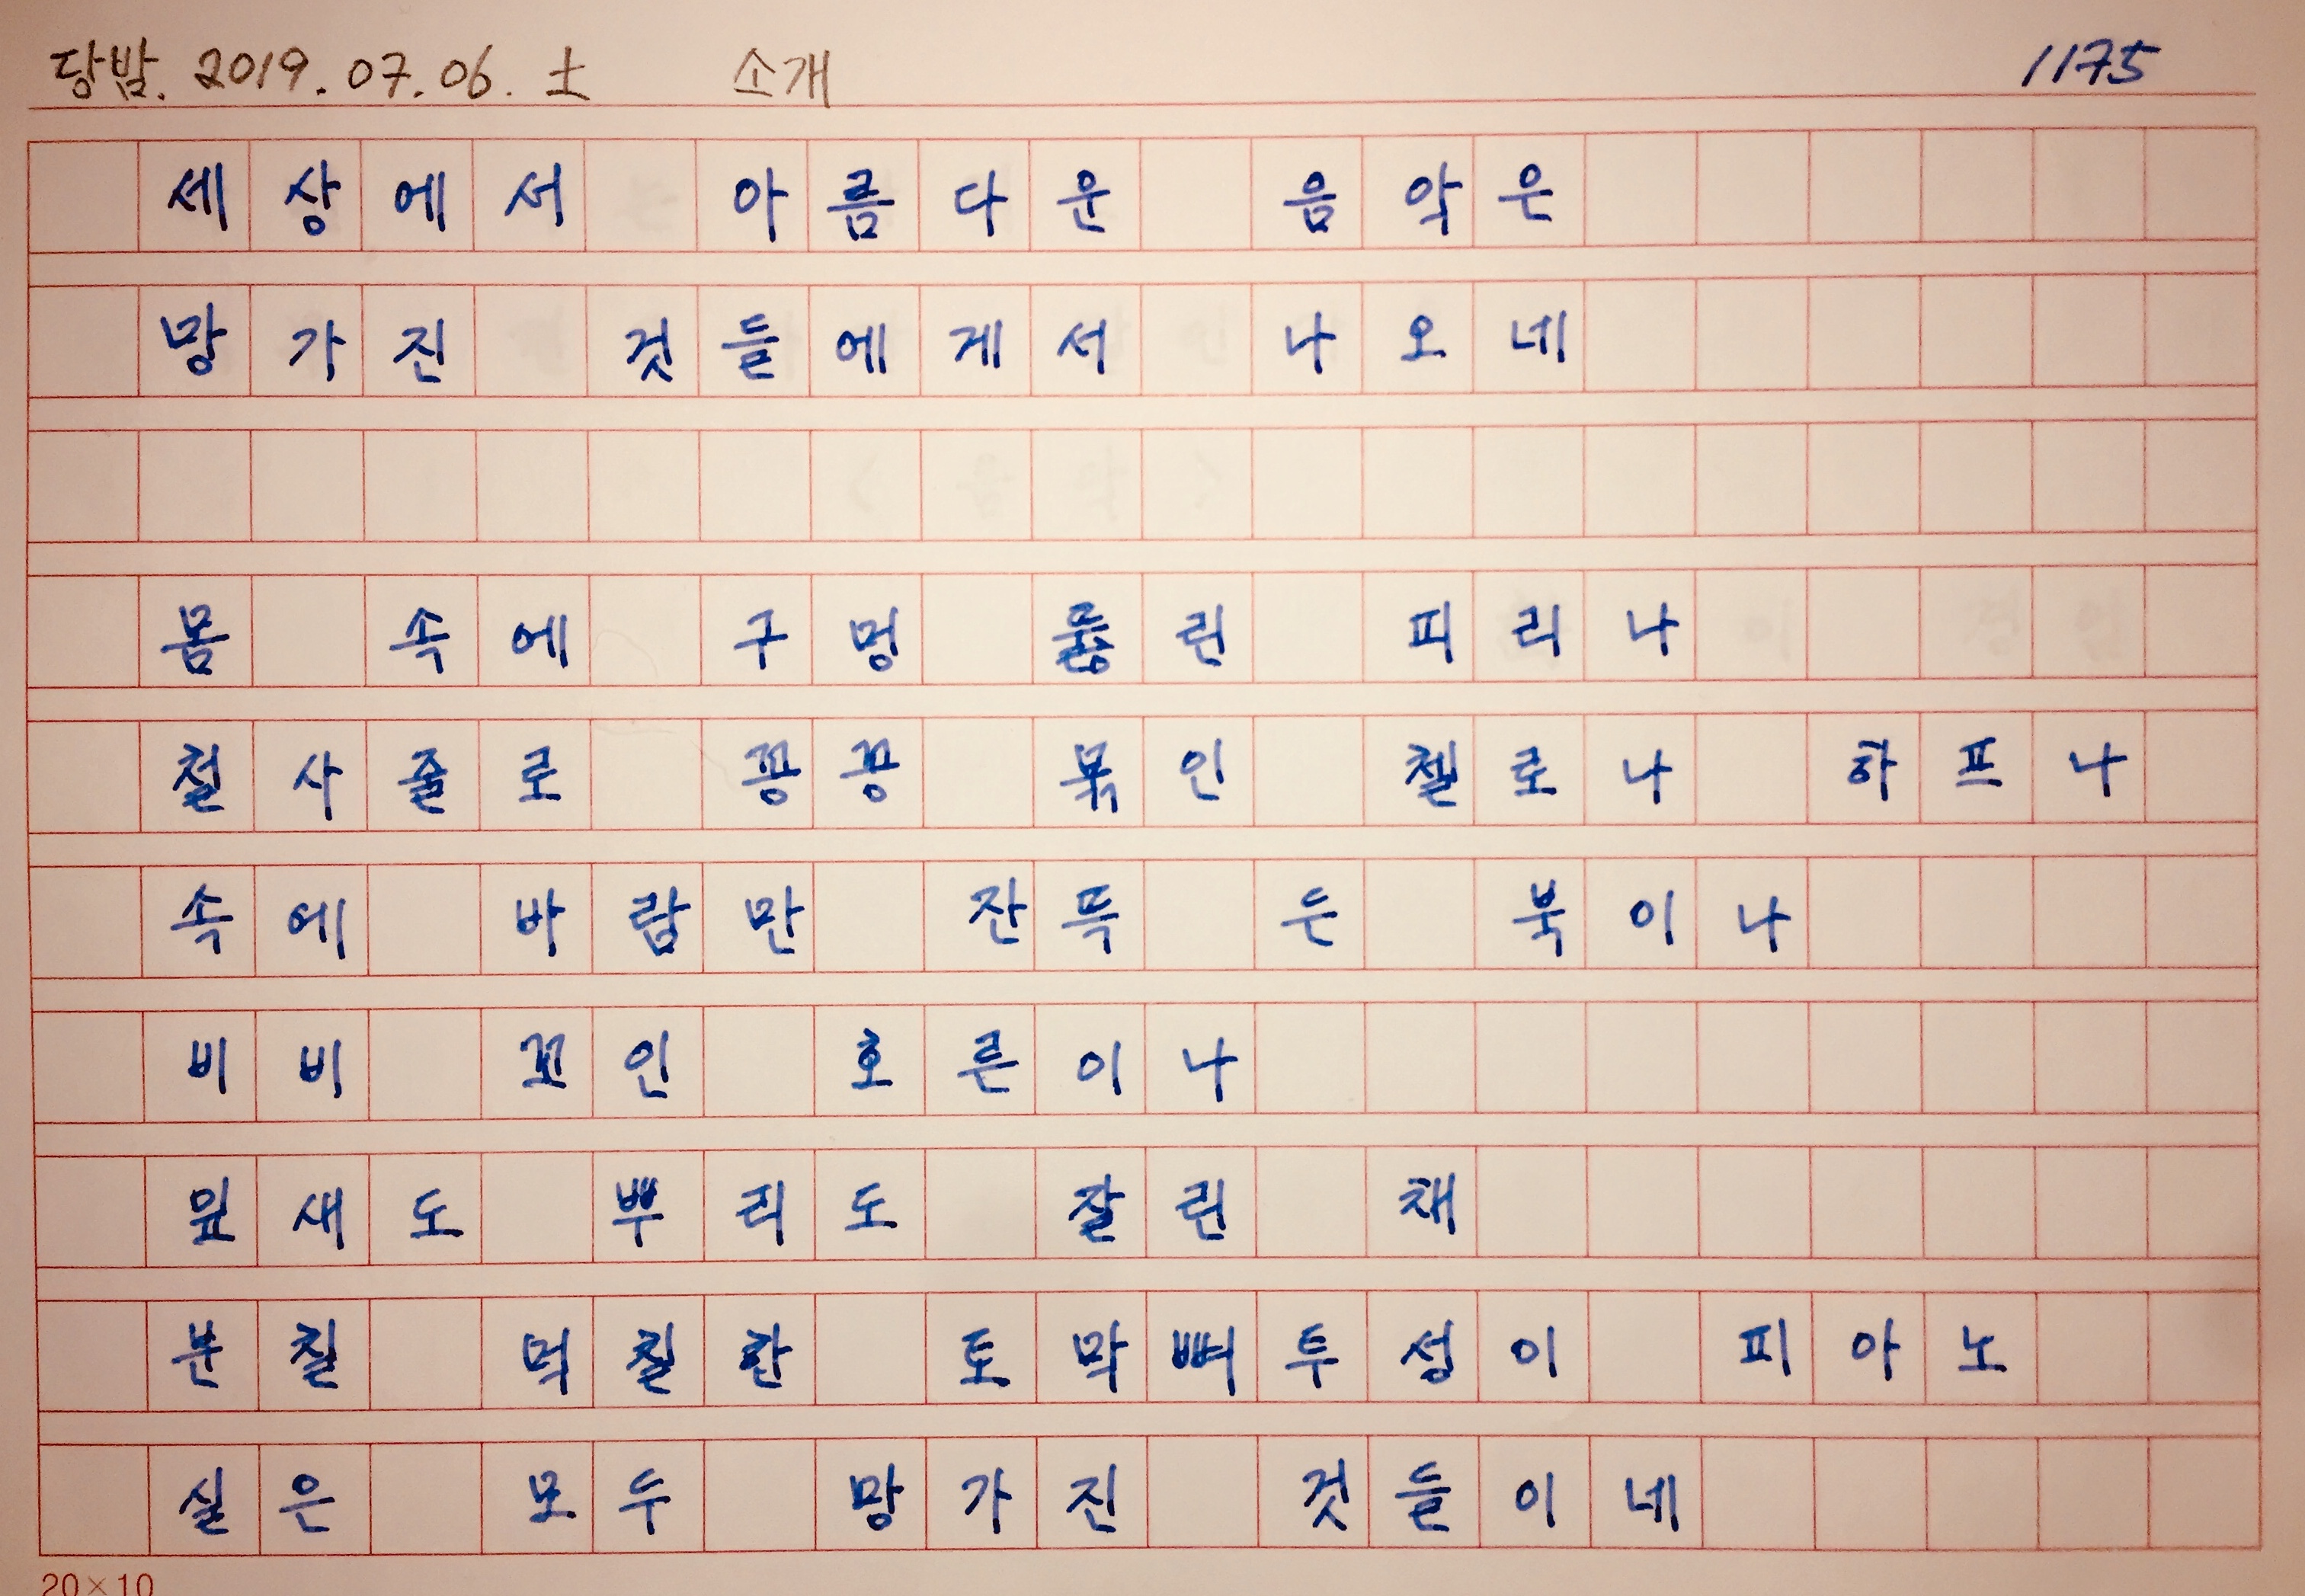 당밤. 2019.07.06. 土 소개 1175
세상에서 아름다운 음악은
망가진 것들에게서 나오네
몸 속에 구멍 뚫린 피리나
철사줄로 꽁꽁 묶인 첼로나 하프나
속에 바람만 잔뜩 든 북이나
비비 꼬인 호른이나
잎새도 뿌리도 잘린 채
분칠 먹칠한 토막뼈투성이 피아노
실은 모두 망가진 것들이네
20×10